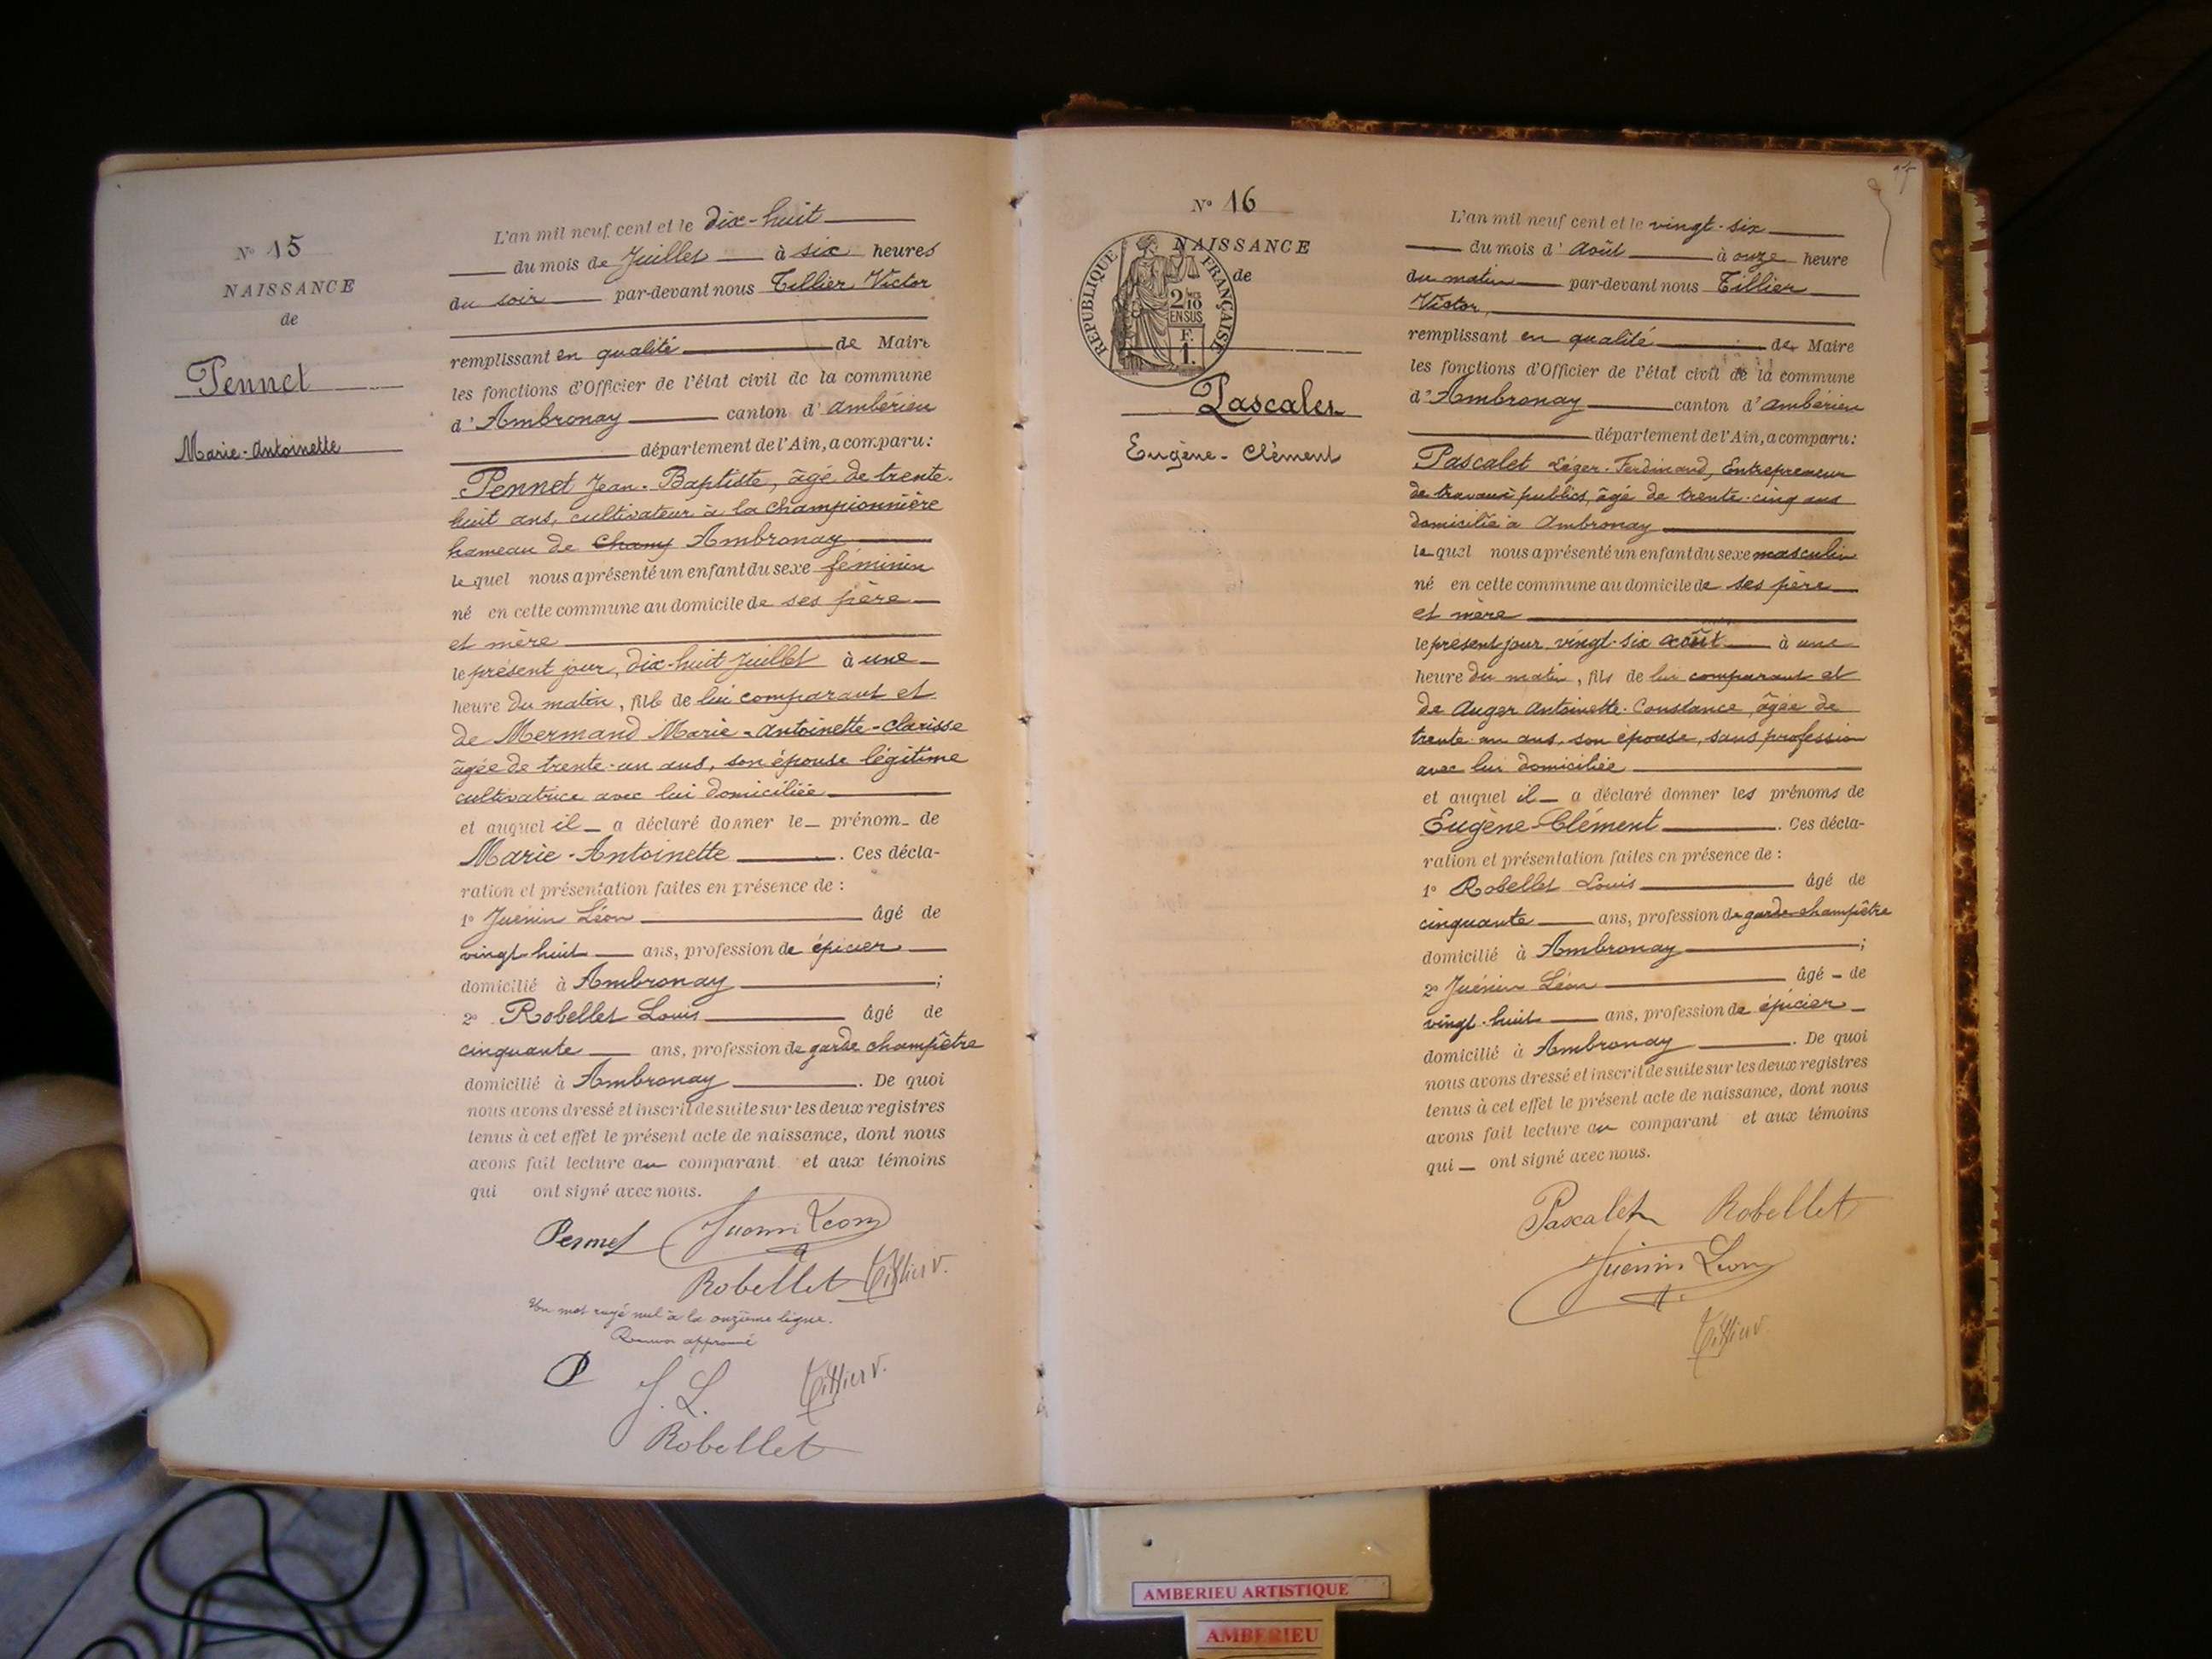 N° 15
NAISSANCE
de
Pennet
Marie-Antoinette
L'an mil neuf cent et le dix-huit
du mois de Juillet à six heures
du soir par-devant nous Tillier Victor
remplissant en qualité de Maire
les fonctions d'Officier de l'état civil de la commune
d'Ambronay canton d'Ambérieu
département de l'Ain, a comparu:
Pennet Jean-Baptiste, âgé de trente-
huit ans, cultivateur à la Championnière
hameau de Champ Ambronay
lequel nous a présenté un enfant du sexe féminin
né en cette commune au domicile de ses père
et mère
le présent jour, dix-huit Juillet à une
heure du matin, fille de lui comparant et
de Mermand Marie-Antoinette-Clarisse
âgée de trente-un ans, son épouse légitime
cultivatrice avec lui domiciliée
et auquel il a déclaré donner le prénom de
Marie-Antoinette. Ces décla-
ration et présentation faites en présence de :
1° Juénin Léon âgé de
vingt-huit ans, profession de épicier
domicilié à Ambronay ;
2° Robellet Louis âgé de
cinquante ans, profession de garde champêtre
domicilié à Ambronay. De quoi
nous avons dressé et inscrit de suite sur les deux registres
tenus à cet effet le présent acte de naissance, dont nous
avons fait lecture au comparant et aux témoins
qui ont signé avec nous.
Pennet Juenin Léon
Robellet Tillier V.
Un mot rayé nul à la onzième ligne.
approuvé
P J. L. Tillier V.
Robellet
N° 16
NAISSANCE
de
REPUBLIQUE FRANÇAISE
2/10
EN SUS
F.
1.
Pascalet
Eugène-Clément
L'an mil neuf cent et le vingt-six
du mois d'Août à onze heure
du matin par-devant nous Tillier
Victor,
remplissant en qualité de Maire
les fonctions d'Officier de l'état civil de la commune
d'Ambronay canton d'Ambérieu
département de l'Ain, a comparu:
Pascalet Léger-Ferdinand, Entrepreneur
de travaux publics, âgé de trente-cinq ans
domicilié à Ambronay
lequel nous a présenté un enfant du sexe masculin
né en cette commune au domicile de ses père
et mère
le présent jour vingt-six août à une
heure du matin, fils de lui comparant et
de Auger Antoinette-Constance, âgée de
trente-un ans, son épouse, sans profession
avec lui domiciliée
et auquel il a déclaré donner les prénoms de
Eugène-Clément. Ces décla-
ration et présentation faites en présence de :
1° Robellet Louis âgé de
cinquante ans, profession de garde-champêtre
domicilié à Ambronay ;
2° Juénin Léon âgé de
vingt-huit ans, profession de épicier
domicilié à Ambronay. De quoi
nous avons dressé et inscrit de suite sur les deux registres
tenus à cet effet le présent acte de naissance, dont nous
avons fait lecture au comparant et aux témoins
qui ont signé avec nous.
Pascalet Robellet
Juenin Léon
Tillier V.
AMBERIEU ARTISTIQUE
AMBERIEU